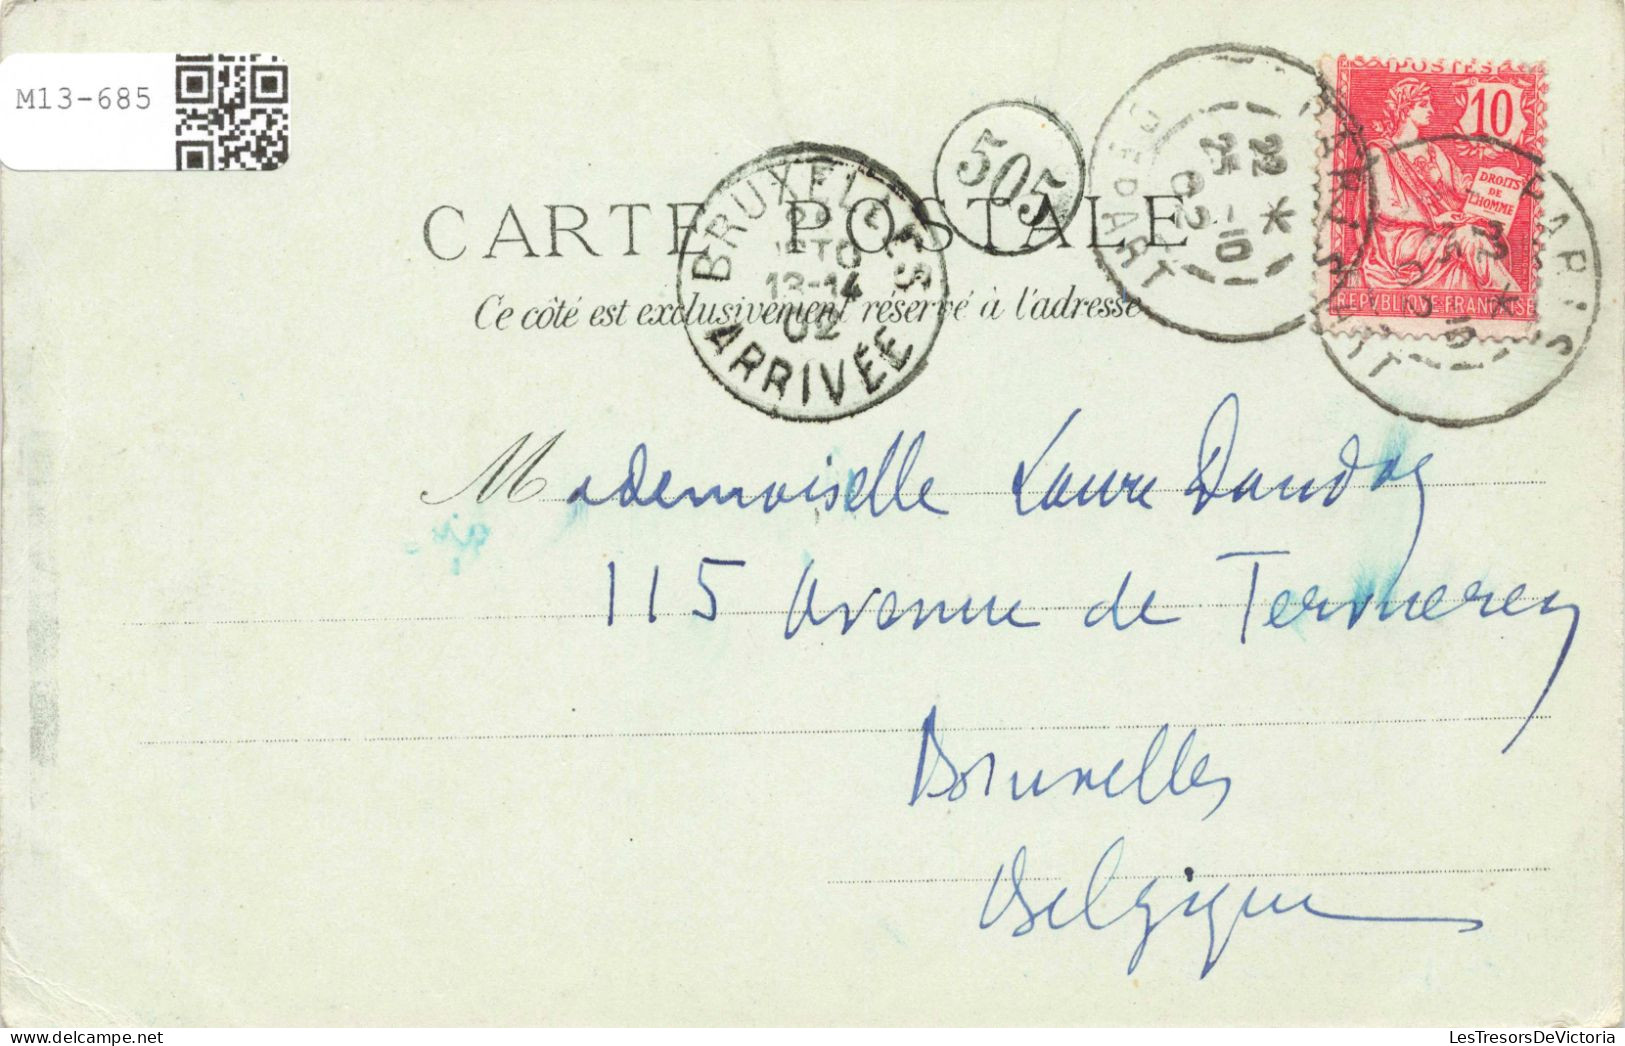 M13-685
POSTES
10
DROITS
DE
L'HOMME
REPVBLIQVE FRANÇAISE
505
BRUXELLES
13-14
02
ARRIVÉE
DÉPART
22
25 -10
02
PARIS
DÉPART
CARTE POSTALE
Ce côté est exclusivement réservé à l'adresse
Mademoiselle Laure
115 Avenue de Tervueren
Bruxelles
Belgique
LesTresorsDeVictoria